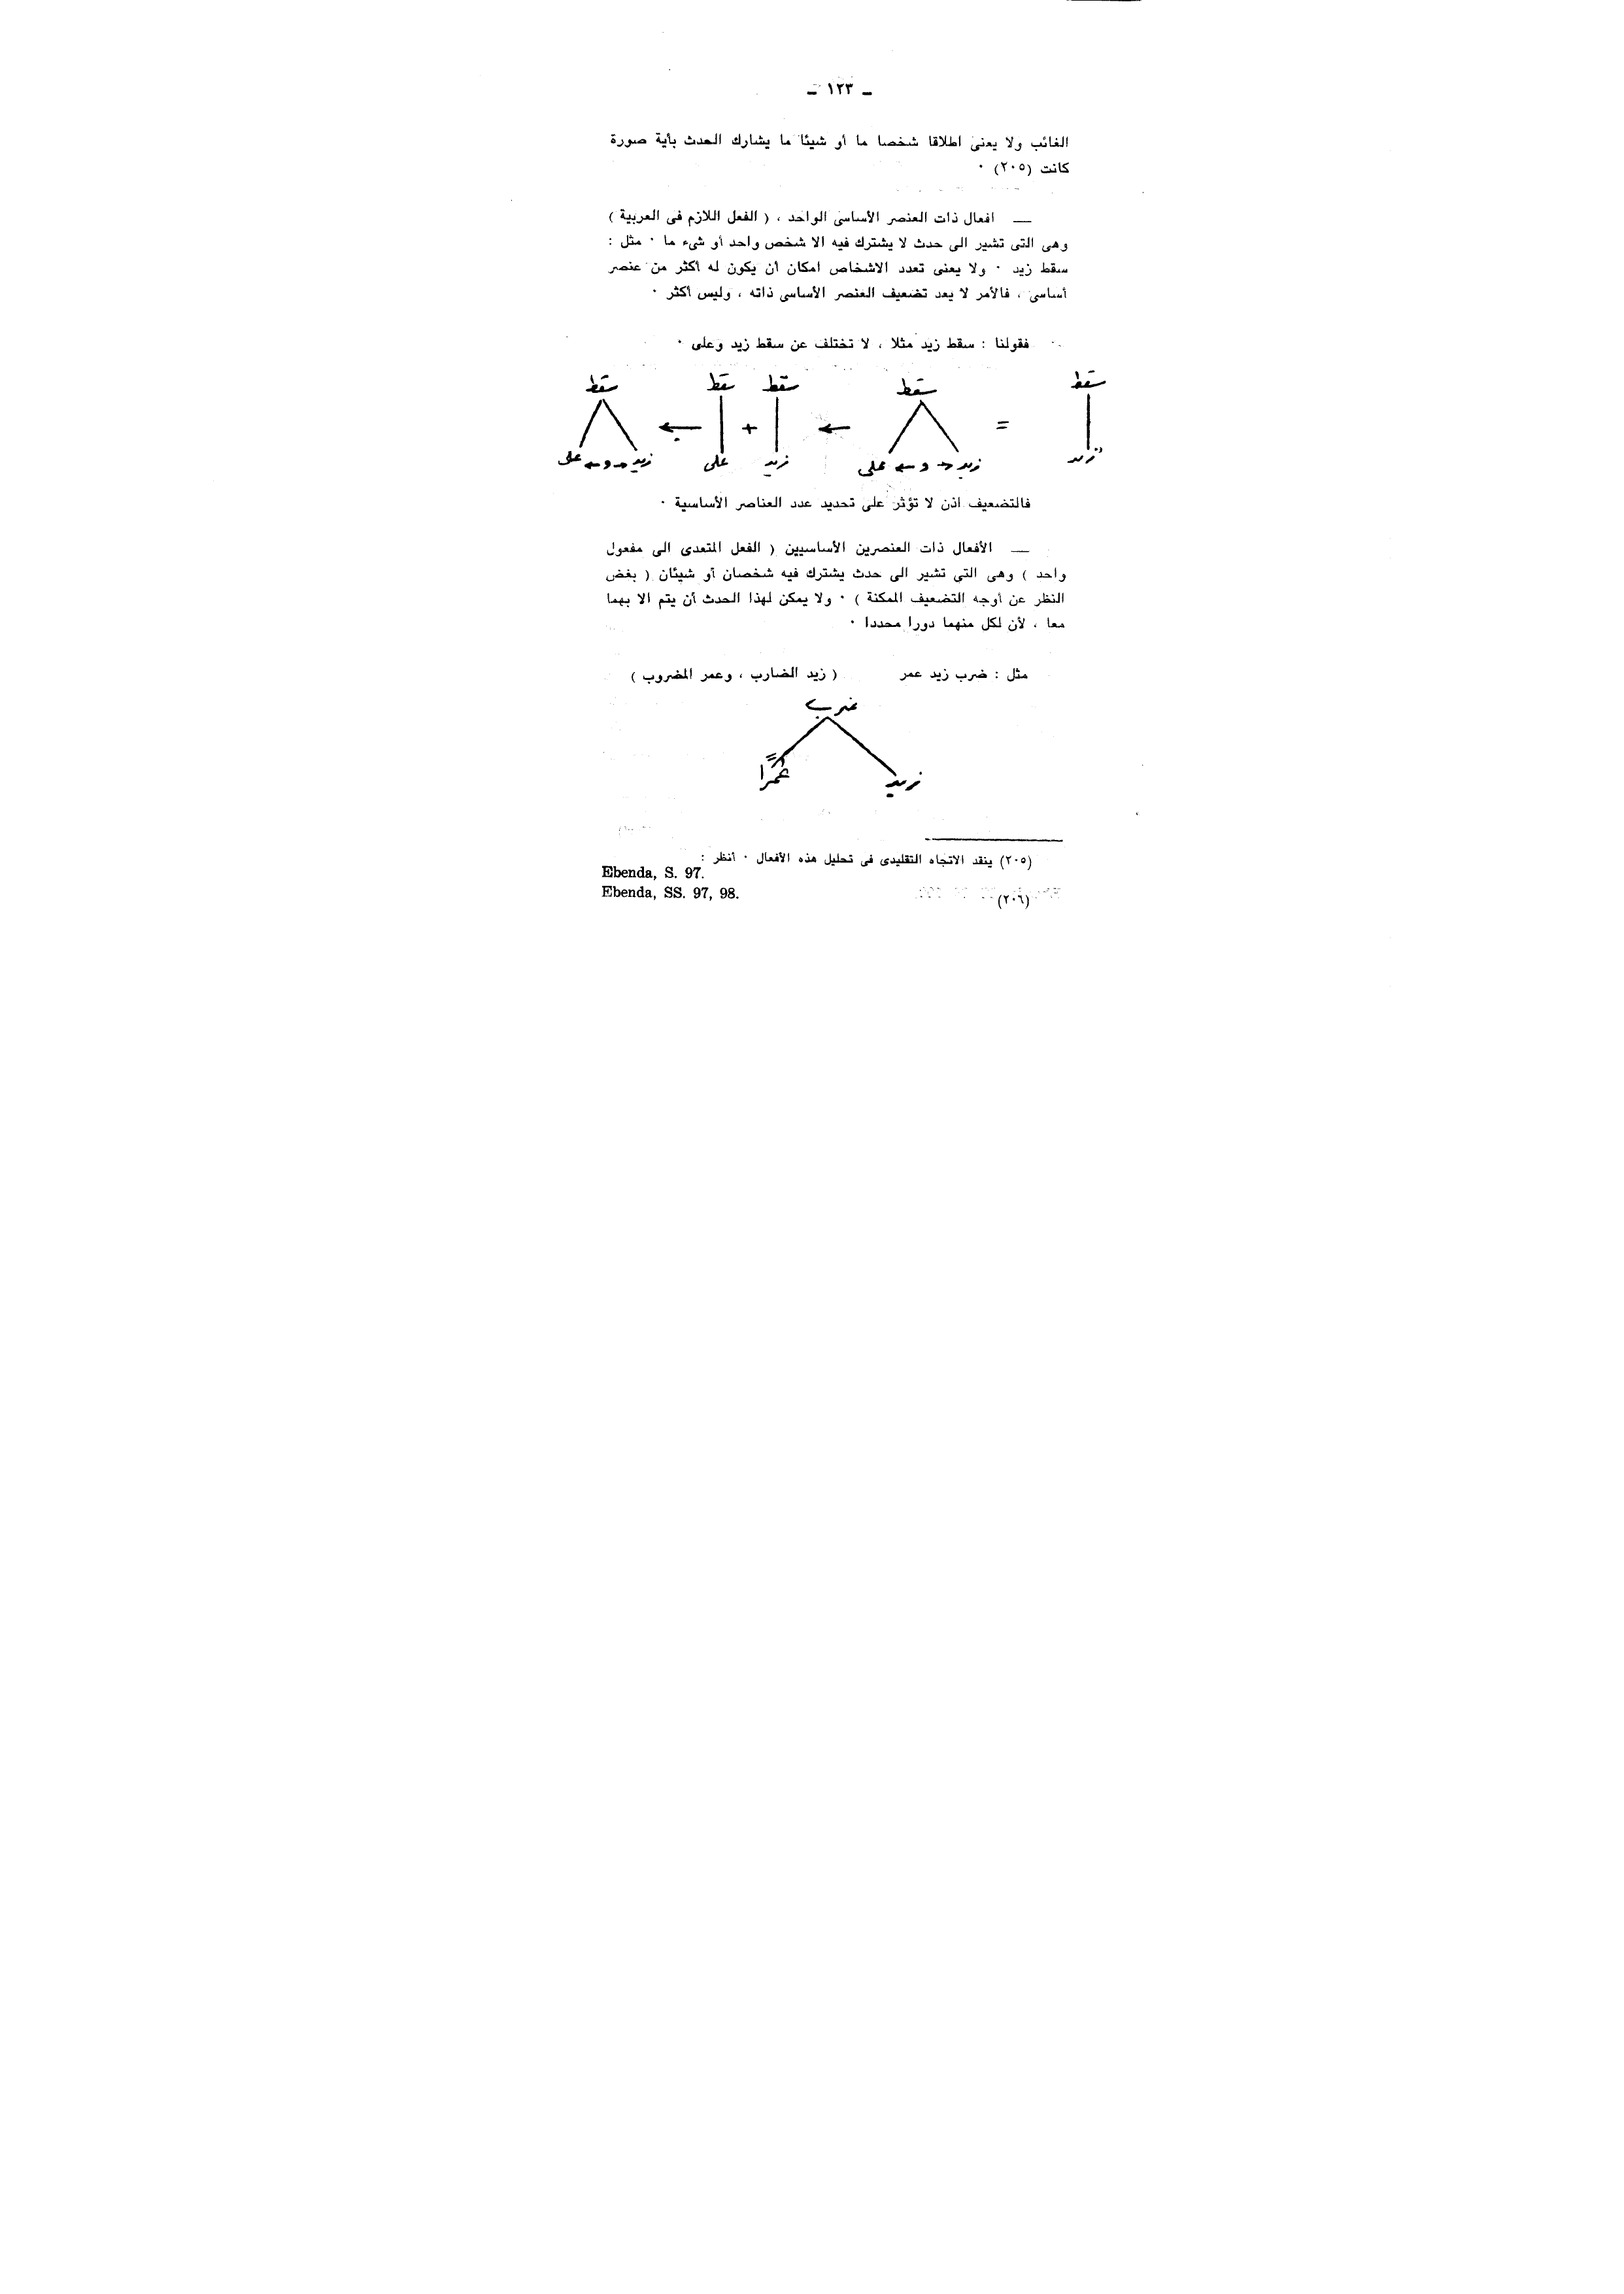 ـ ١٢٣ ـ
الغائب ولا يعنى اطلاقا شخصا ما أو شيئا ما يشارك الحدث بأية صورة
كانت (٢٠٥) ٠
ــ افعال ذات العنصر الأساسى الواحد ، ( الفعل اللازم فى العربية )
وهى التى تشير الى حدث لا يشترك فيه الا شخص واحد أو شىء ما ٠ مثل :
سقط زيد ٠ ولا يعنى تعدد الاشخاص امكان أن يكون له أكثر من عنصر
أساسى ، فالأمر لا يعد تضعيف العنصر الأساسى ذاته ، وليس أكثر ٠
فقولنا : سقط زيد مثلا ، لا تختلف عن سقط زيد وعلى ٠
سقط = سقط ← سقط + سقط ← سقط
زيد زيد → و ← على زيد على زيد → و ← على
فالتضعيف اذن لا تؤثر على تحديد عدد العناصر الأساسية ٠
ــ الأفعال ذات العنصرين الأساسيين ( الفعل المتعدى الى مفعول
واحد ) وهى التى تشير الى حدث يشترك فيه شخصان أو شيئان ( بغض
النظر عن أوجه التضعيف الممكنة ) ٠ ولا يمكن لهذا الحدث أن يتم الا بهما
معا ، لأن لكل منهما دورا محددا ٠
مثل : ضرب زيد عمر ( زيد الضارب ، وعمر المضروب )
ضرب
زيد عمرًا
(٢٠٥) ينقد الاتجاه التقليدى فى تحليل هذه الأفعال ٠ أنظر :
Ebenda, S. 97.
(٢٠٦) Ebenda, SS. 97, 98.